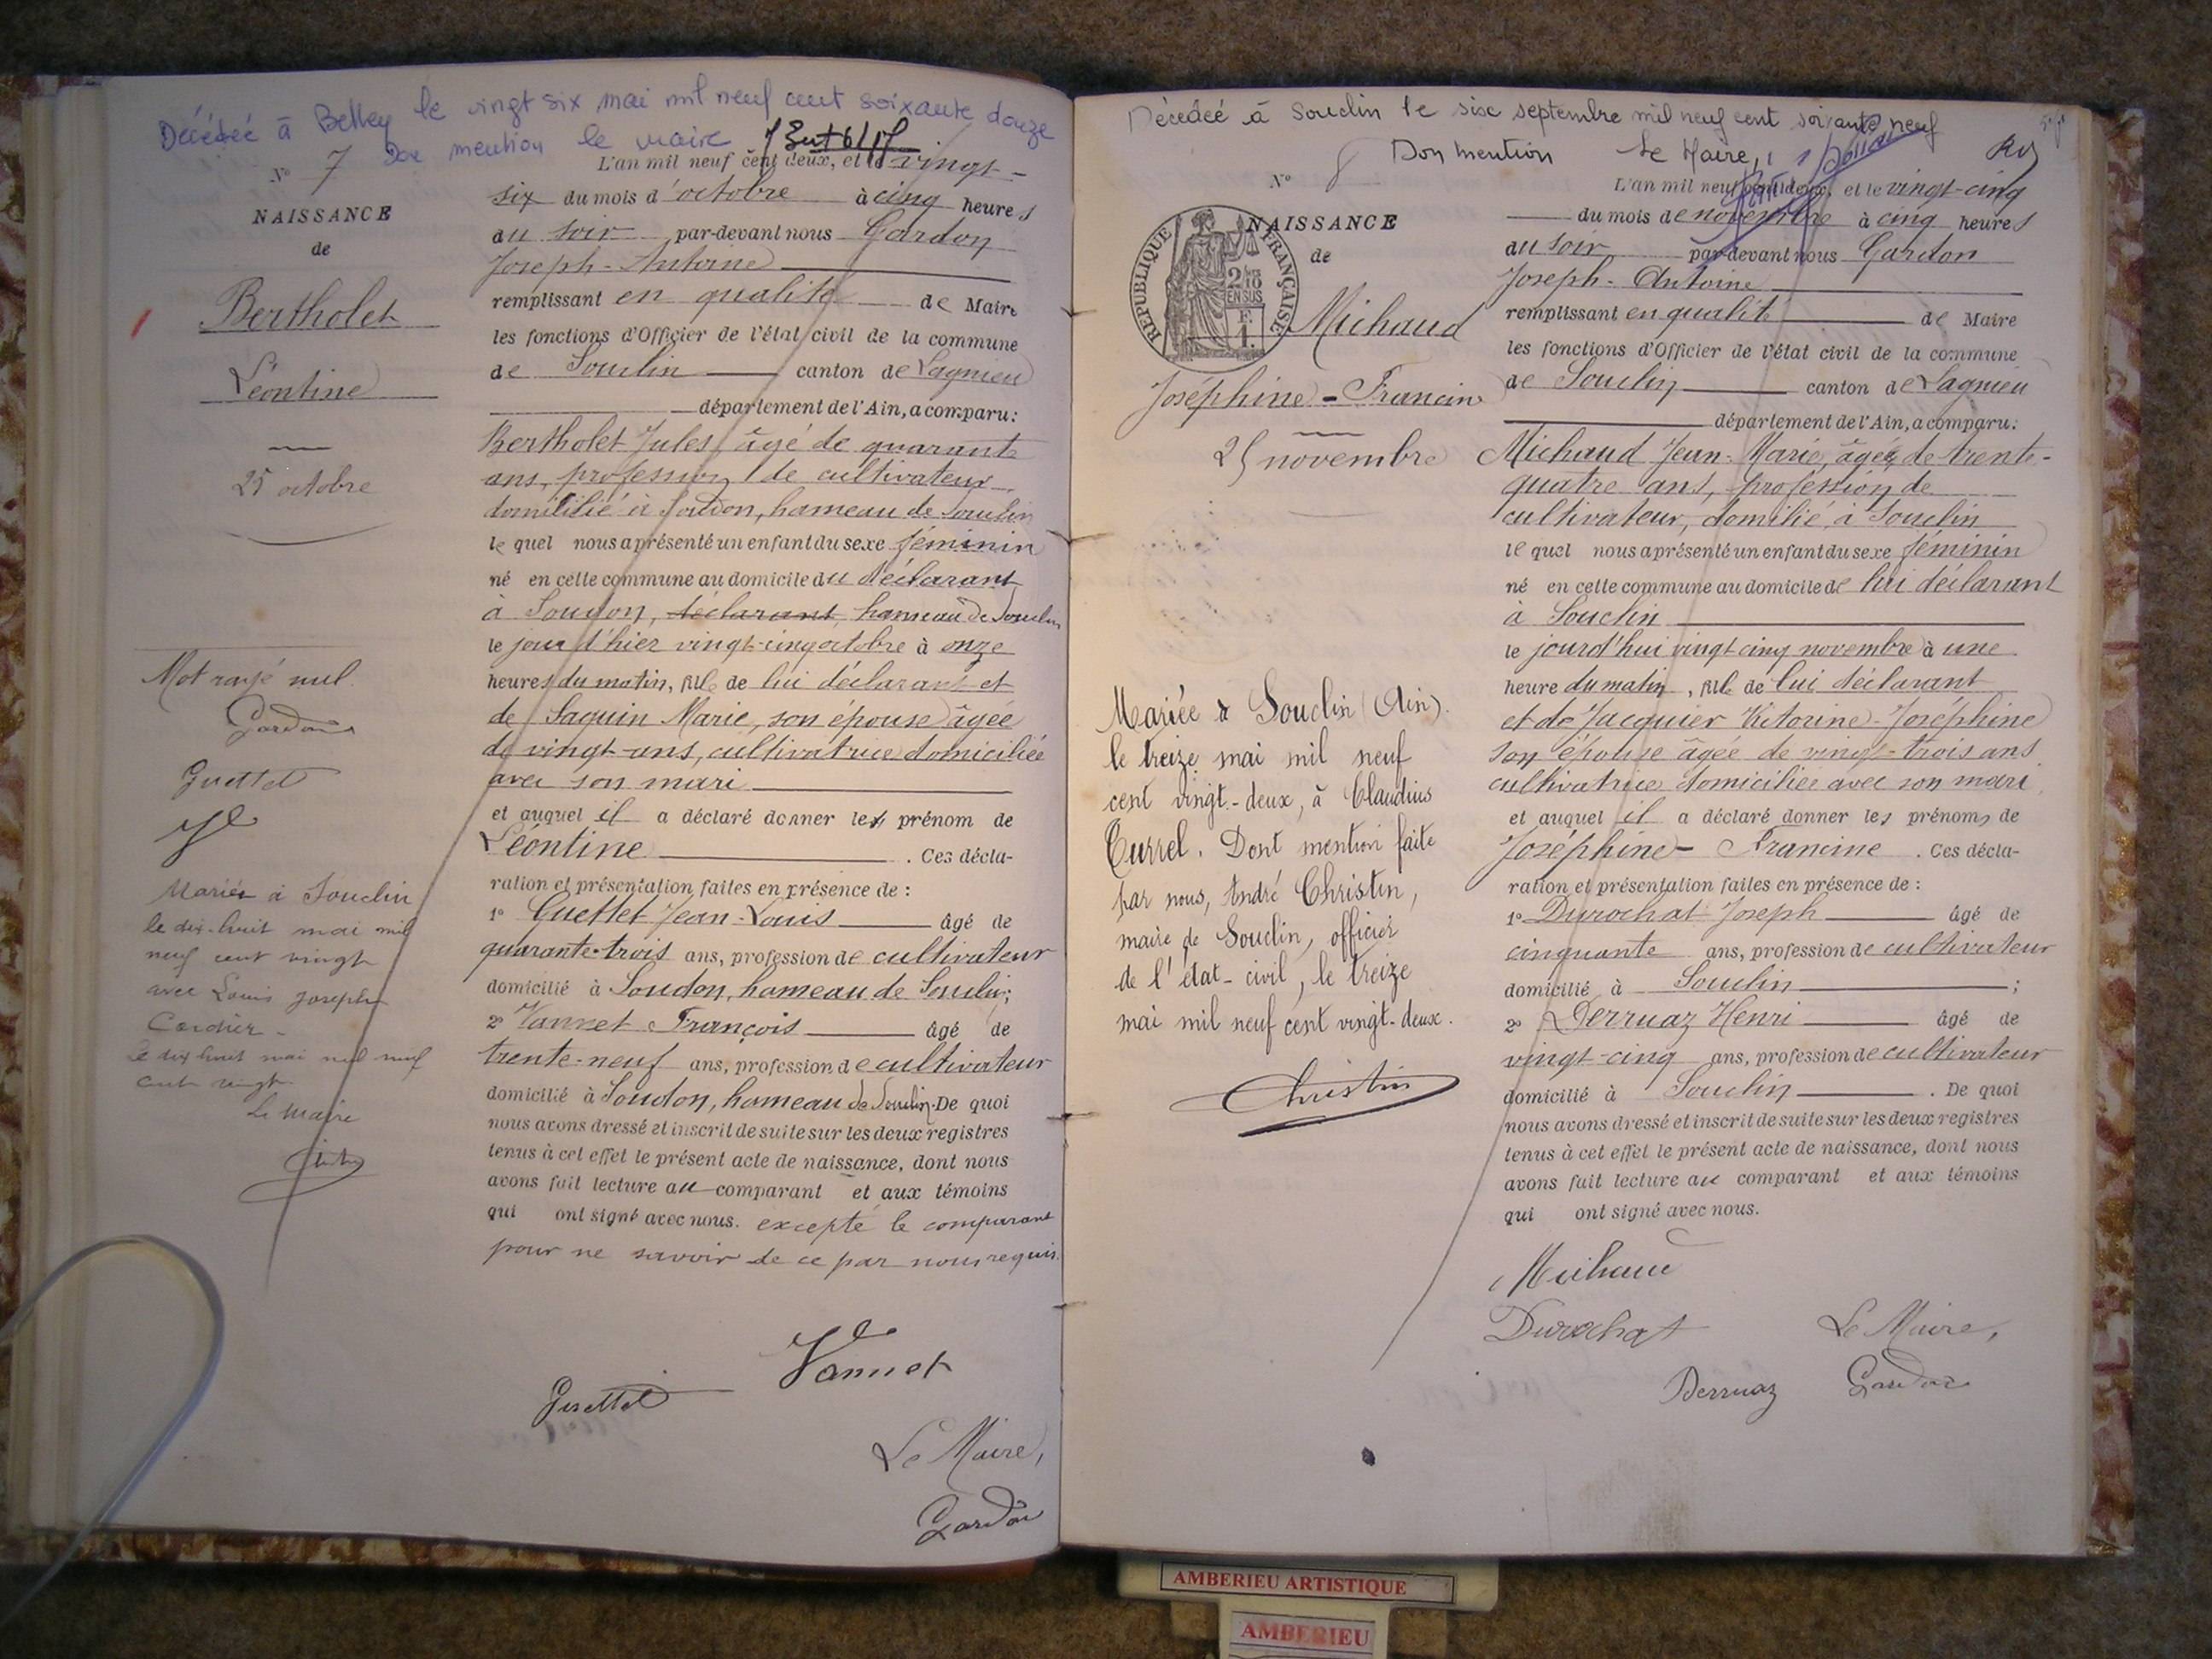 Décédée à Belley le vingt six mai mil neuf cent soixante douze
mention le maire
N° 7
NAISSANCE
de
Bertholet
Léontine
25 octobre
Mot rayé nul
Gardon
Guettet
Mariée à Souclin
le dix-huit mai mil
neuf cent vingt
avec Louis Joseph
Cordier
Le dix huit mai mil neuf
cent vingt
Le Maire
L'an mil neuf cent deux, et le vingt-
six du mois d'octobre à cinq heures
au soir par-devant nous Gardon
Joseph-Antoine
remplissant en qualité de Maire
les fonctions d'Officier de l'état civil de la commune
de Souclin canton de Lagnieu
département de l'Ain, a comparu:
Bertholet Jules, âgé de quarante
ans, profession de cultivateur
domicilié à Soudon, hameau de Souclin
le quel nous a présenté un enfant du sexe féminin
né en cette commune au domicile du déclarant
à Soudon, déclarant, hameau de Souclin
le jour d'hier vingt-cinq octobre à onze
heures du matin, fille de lui déclarant et
de Jaquin Marie, son épouse âgée
de vingt-ans, cultivatrice domiciliée
avec son mari
et auquel il a déclaré donner les prénom de
Léontine . Ces décla-
ration et présentation faites en présence de :
1° Guettet Jean-Louis âgé de
quarante-trois ans, profession de cultivateur
domicilié à Soudon, hameau de Souclin;
2° Vannet François âgé de
trente-neuf ans, profession de cultivateur
domicilié à Soudon, hameau de Souclin. De quoi
nous avons dressé et inscrit de suite sur les deux registres
tenus à cet effet le présent acte de naissance, dont nous
avons fait lecture au comparant et aux témoins
qui ont signé avec nous. excepté le comparant
pour ne savoir de ce par nous requis.
Vannet
Guettet
Le Maire,
Gardon
Décédée à Souclin le six septembre mil neuf cent soixante neuf
Don mention Le Maire,
N° 8
NAISSANCE
de
REPUBLIQUE FRANÇAISE
2/10
EN SUS
Michaud
Joséphine-Francine
25 novembre
Mariée à Souclin (Ain).
le treize mai mil neuf
cent vingt-deux, à Claudius
Currel. Dont mention faite
par nous, André Christin,
maire de Souclin, officier
de l'état-civil, le treize
mai mil neuf cent vingt-deux.
Christin
L'an mil neuf cent deux, et le vingt-cinq
du mois de novembre à cinq heures
au soir par-devant nous Gardon
Joseph-Antoine
remplissant en qualité de Maire
les fonctions d'Officier de l'état civil de la commune
de Souclin canton de Lagnieu
département de l'Ain, a comparu:
Michaud Jean-Marie, âgé de trente-
quatre ans, profession de
cultivateur, domilié à Souclin
le quel nous a présenté un enfant du sexe féminin
né en cette commune au domicile de lui déclarant
à Souclin
le jourd'hui vingt cinq novembre à une
heure du matin, fille de lui déclarant
et de Jacquier Victorine-Joséphine
son épouse âgée de vingt-trois ans
cultivatrice domiciliée avec son mari
et auquel il a déclaré donner les prénoms de
Joséphine-Francine . Ces décla-
ration et présentation faites en présence de :
1° Durochat Joseph âgé de
cinquante ans, profession de cultivateur
domicilié à Souclin ;
2° Derruaz Henri âgé de
vingt-cinq ans, profession de cultivateur
domicilié à Souclin . De quoi
nous avons dressé et inscrit de suite sur les deux registres
tenus à cet effet le présent acte de naissance, dont nous
avons fait lecture au comparant et aux témoins
qui ont signé avec nous.
Michaud
Durochat Le Maire,
Derruaz Gardon
AMBERIEU ARTISTIQUE
AMBERIEU